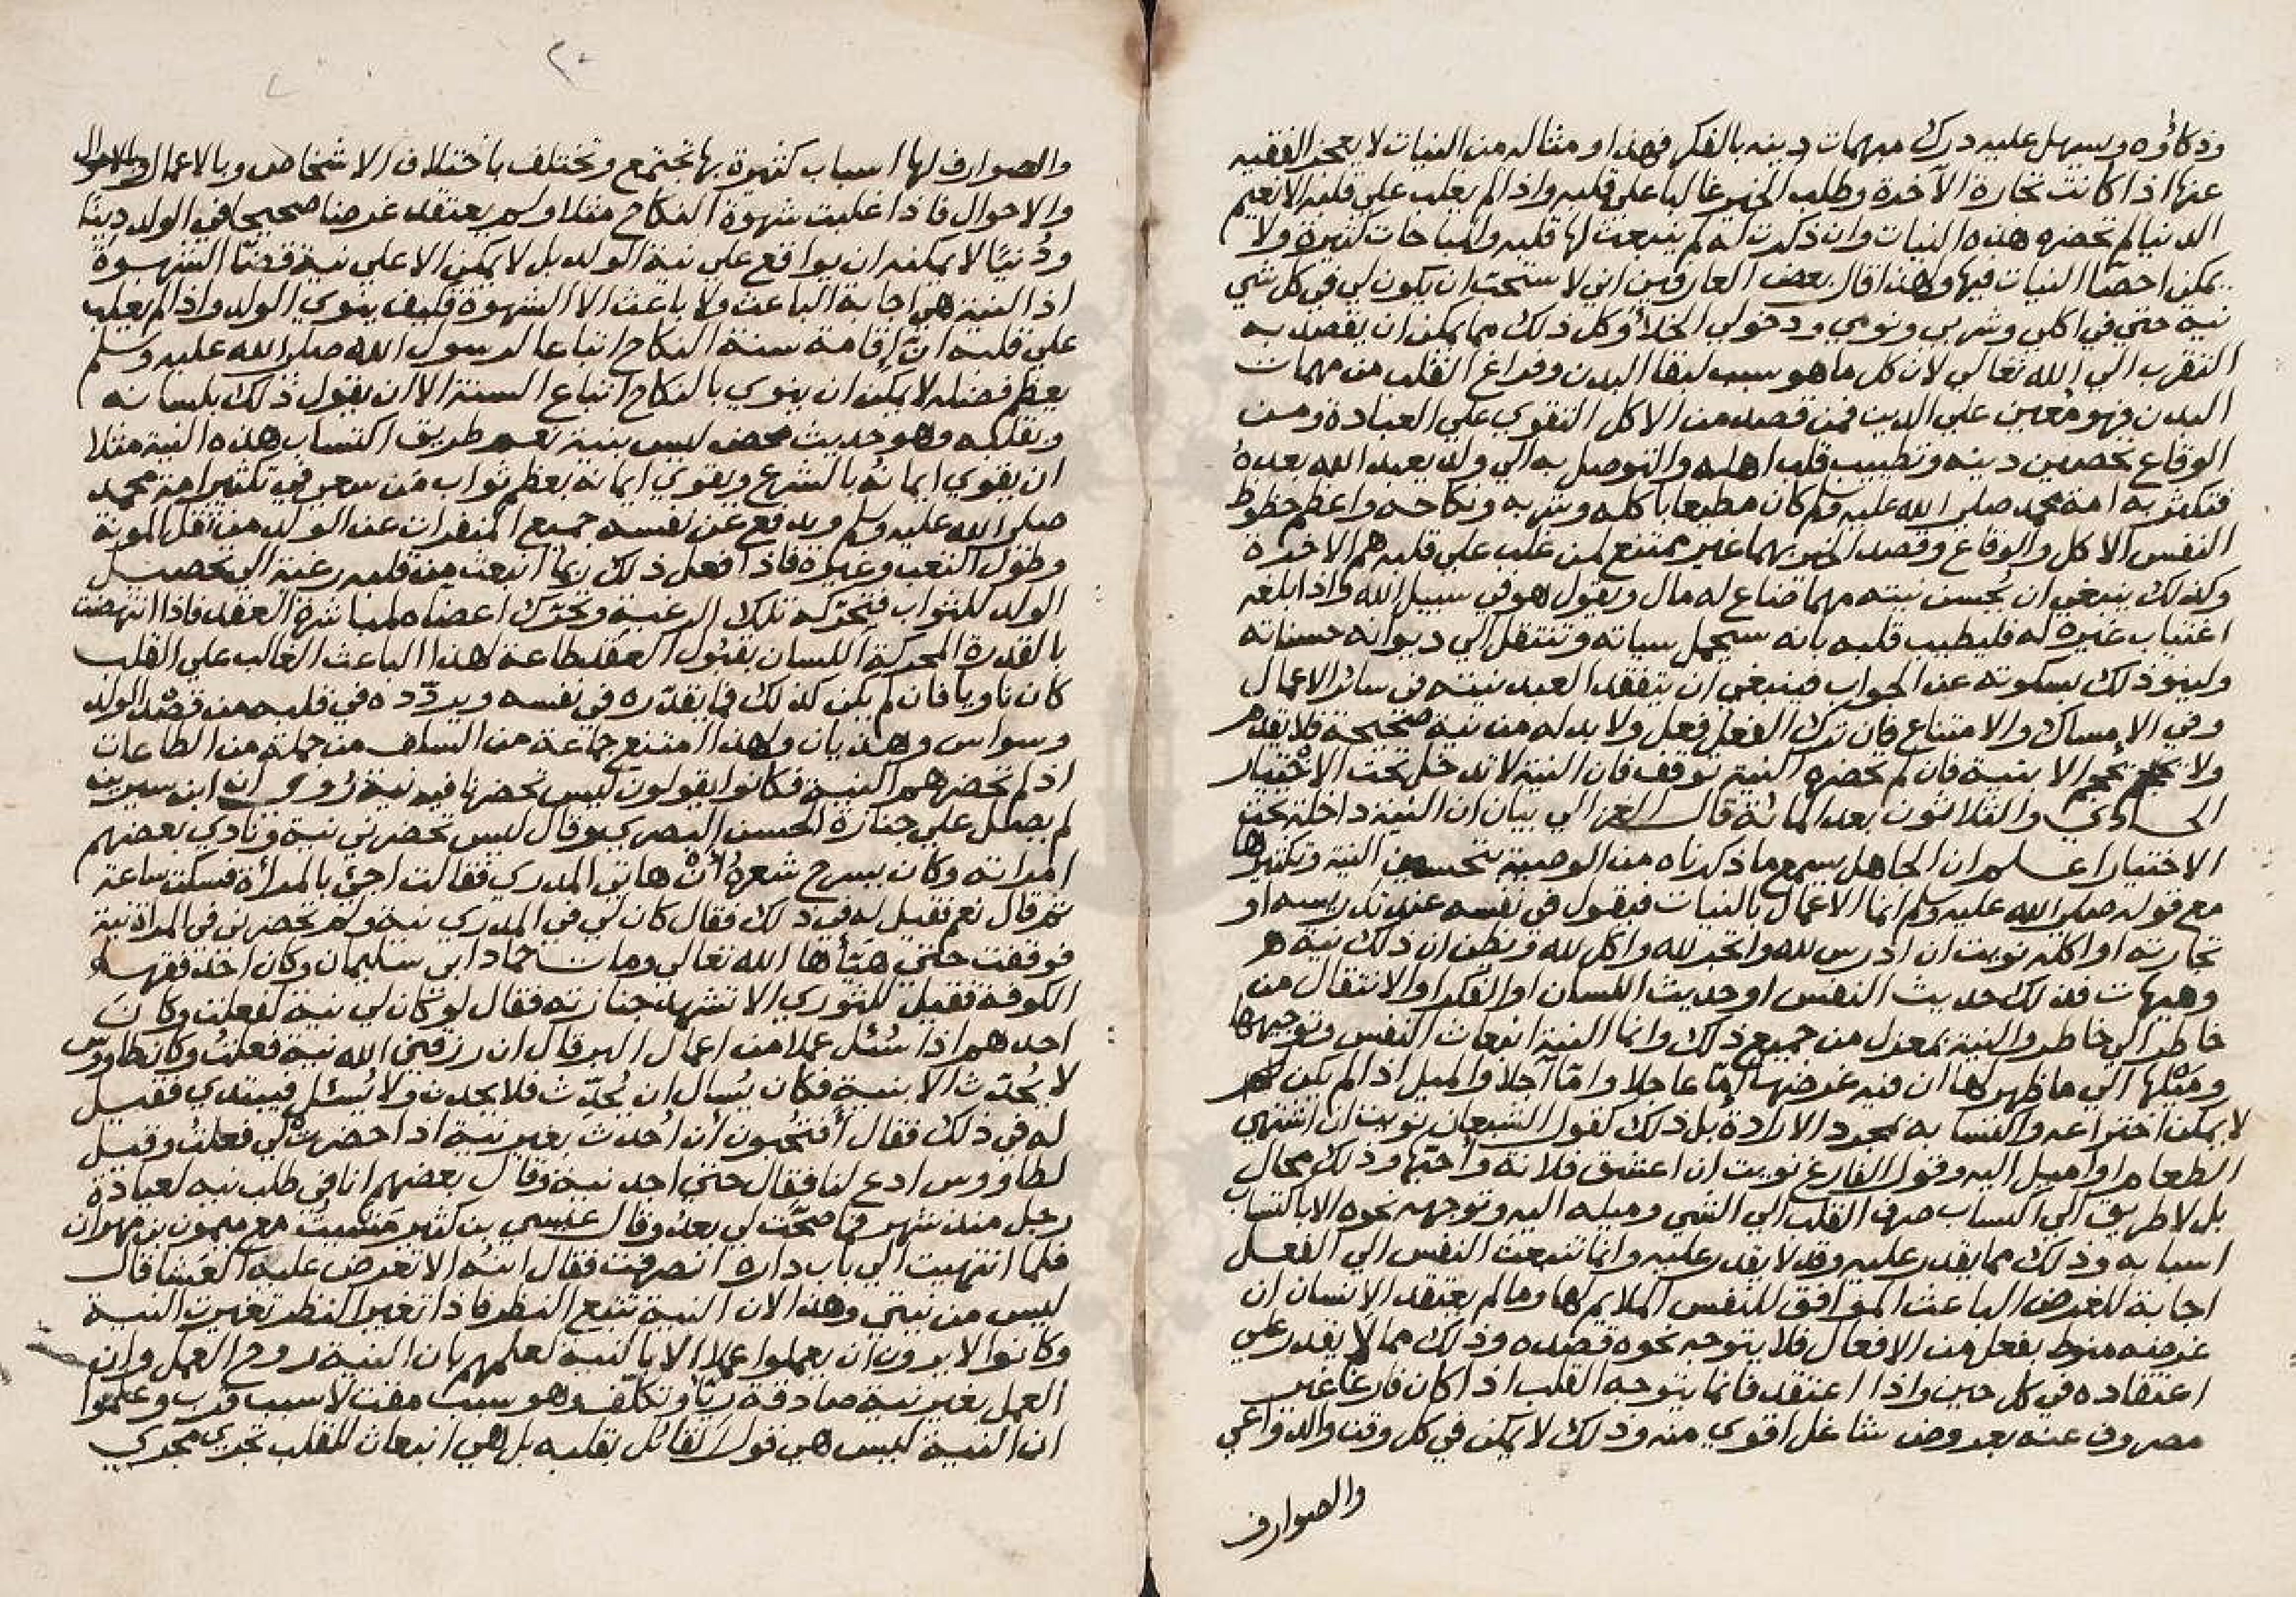 وذكاؤه وسيهل عليه درك مهمات دينه بالفكر فهذا ومثاله من النيات لا يعجز الفقيه
عنها اذا كانت تجارة الآخرة وطلب الخير غالبا على قلبه واذا لم يغلب على قلبه الا نعيم
الدنيا لم تحضره هذه النيات وان ذكرت له لم ينبعث لها قلبه والمباحات كثيرة ولا
يمكن احصا النيات فيها ولهذا قال بعض العارفين اني لاستحب ان يكون لي في كل شي
نية حتي في اكلي وشربي ونومي ودخولي الخلاؤ وكل ذلك مما يمكن ان يقصد به
التقرب الي الله تعالي لان كل ما هو سبب لبقا البدن وفراغ القلب من مهمات
البدن فهو معين علي الدين فمن قصد من الاكل التقوي علي العبادة ومن
الوقاع تحصين دينه وتطييب قلب اهله والتوصل به الي ولد يعبد الله بعده
فتكثر به امة محمد صلى الله عليه وسلم كان مطيعا باكله وشربه ونكاحه واعظم حظوظ
النفس الاكل والوقاع وقصد الخير بهما غير ممتنع لمن غلب علي قلبه هم الاخرة
وكذلك ينبغي ان يُحسن نيته مهما ضاع له مال ويقول هو في سبيل الله واذا بلغه
اغتياب غيره له فليطيب قلبه بانه سيحمل سياته وتنتقل الي ديوانه حسناته
ولينو ذلك بسكوته عن الجواب فينبغي ان يتفقد العبد نيته في سائر الاعمال
وفي الامساك والامتناع فان ترك الفعل فعل ولا بد له من نية صحيحة فلا يقدم
ولا يحجم الا بنية فان لم تحضره النية توقف فان النية لا تدخل تحت الاختيار
الحادي والثلاثون بعد المائة قال الغزالي بيان ان النية داخلة تحت
الاختيار اعلم ان الجاهل يسمع ما ذكرناه من الوصية بتحسين النية وتكثيرها
مع قوله صلى الله عليه وسلم انما الاعمال بالنيات فيقول في نفسه عند تدريسه او
تجارته او اكله نويت ان ادرس لله واتجر لله واكل لله وتظن ان ذلك نية
وهيهات فذلك حديث النفس او حديث اللسان او الفكر او الانتقال من
خاطر الي خاطر والنية بمعزل من جميع ذلك وانما النية انبعاث النفس وتوجهها
وميلها الي ما ظهر لها ان فيه غرضها امّا عاجلا وامّا آجلا والميل اذا لم يكن
لا يمكن اختراعه واكتسابه بمجرد الارادة بل ذلك كقول الشبعان نويت ان اشتهي
الطعام او اميل اليه وقول الفارغ نويت ان اعتشق فلانة واحبها وذلك محال
بل لا طريق الي اكتساب صرف القلب الي الشي وميله اليه وتوجهه نحوه الا باكتساب
اسبابه وذلك مما يقدر عليه وقد لا يقدر عليه وانما تنبعث النفس الي الفعل
اجابة للغرض الباعث الموافق للنفس الملايم لها وما لم يعتقد الانسان ان
غرضه منوط بفعل من الافعال فلا يتوجه نحوه قصده وذلك مما لا يقدر علي
اعتقاده في كل حين واذا اعتقد فانما يتوجه القلب اذا كان فارغا غير
مصروف عنه بعروض شاغل اقوي منه وذلك لا يمكن في كل وقت والدواعي
والصوارف
٢٠
والصوارف لها اسباب كثيرة بها تجتمع وتختلف باختلاف الاشخاص وبالاعمال
والاحوال فاذا غلبت شهوة النكاح مثلا ولم يعتقد غرضا صحيحا في الولد دينا
ودُنيًا لا يمكنه ان يواقع علي نية الولد بل لا يمكن الا علي نية قضا الشهوة
اذ النية هي اجابة الباعث ولا باعث الا الشهوة فكيف ينوي الولد واذا لم يغلب
علي قلبه انّ اقامة سنة النكاح اتباعا لرسول الله صلى الله عليه وسلم
يعظم فضله لا يمكن ان ينوي بالنكاح اتباع السنة الا ان يقول ذلك بلسانه
وبقلبه وهو حديث محض ليس بنية نعم طريق اكتساب هذه النية مثلا
ان يقوي ايمانه بالشرع ويقوي ايمانه بعظم ثواب من سعي في تكثير امة محمد
صلى الله عليه وسلم ويدفع عن نفسه جميع المنفرات عن الولد من ثقل المونة
وطول التعب وغيره فاذا فعل ذلك ربما انبعث من قلبه رغبة الي تحصيل
الولد للثواب فتحركه تلك الرغبة وتحرك اعضاه لمباشرة العقد فاذا انتهضت
بالقدرة المحركة اللسان بقبول العقد طاعة لهذا الباعث الغالب علي القلب
كان ناويا فان لم يكن كذلك فما يقدّره في نفسه ويردّده في قلبه من قصد الولد
وسواس وهذيان ولهذا امتنع جماعة من السلف من جملة من الطاعات
اذ لم تحضرهم النية فكانوا يقولون ليس تحضرنا فيه نية رُوي ان ابن سيرين
لم يصل علي جنازة الحسن البصري وقال ليس تحضرني نية ونادي بعضهم
امراته وكان يسرح شعرهُ أن هاتي المدري فقالت اجئ بالمرأة فسكت ساعة
ثم قال نعم فقيل له في ذلك فقال كان لي في المدري نية ولم تحضرني في المراة نية
فوقفت حتي هيّأها الله تعالي ومات حماد ابن سليمان وكان احد فقهاء
الكوفة فقيل للثوري الا تشهد جنازته فقال لو كان لي نية لفعلت وكان
احدهم اذا سُئل عملا من اعمال البر قال ان رزقني الله نية فعلت وكان طاووس
لا يُحدّث الا بنية فكان يُسال ان يُحدّث فلا يحدث ولا يُسئل فيبتدي فقيل
له في ذلك فقال أفتحبون أن أحدث بغير نية اذا حضرت لي فعلتُ وقيل
لطاووس ادع لنا فقال حتي اجد نية وقال بعضهم انا في طلب نيه لعيادة
رجل منذ شهر فما صحّت لي بعد وقال عيسي بن كثير مشيت مع ميمون بن مهران
فلما انتهيت الي باب داره انصرفت فقال ابنه الا تعرض عليه العشا قال
ليس من نيتي وهذا لان النية تتبع النظر فاذا تغير النظر تغيرت النية
وكانوا لا يرون ان يعملوا عملا الا بالنية لعلمهم بان النية روح العمل وان
العمل بغير نية صادقة ريآ وتكلف وهو سبب مقت لا سبب قرب وعلموا
ان النية ليس هي قول القائل بقلبه بل هي انبعاث للقلب تجري مجري